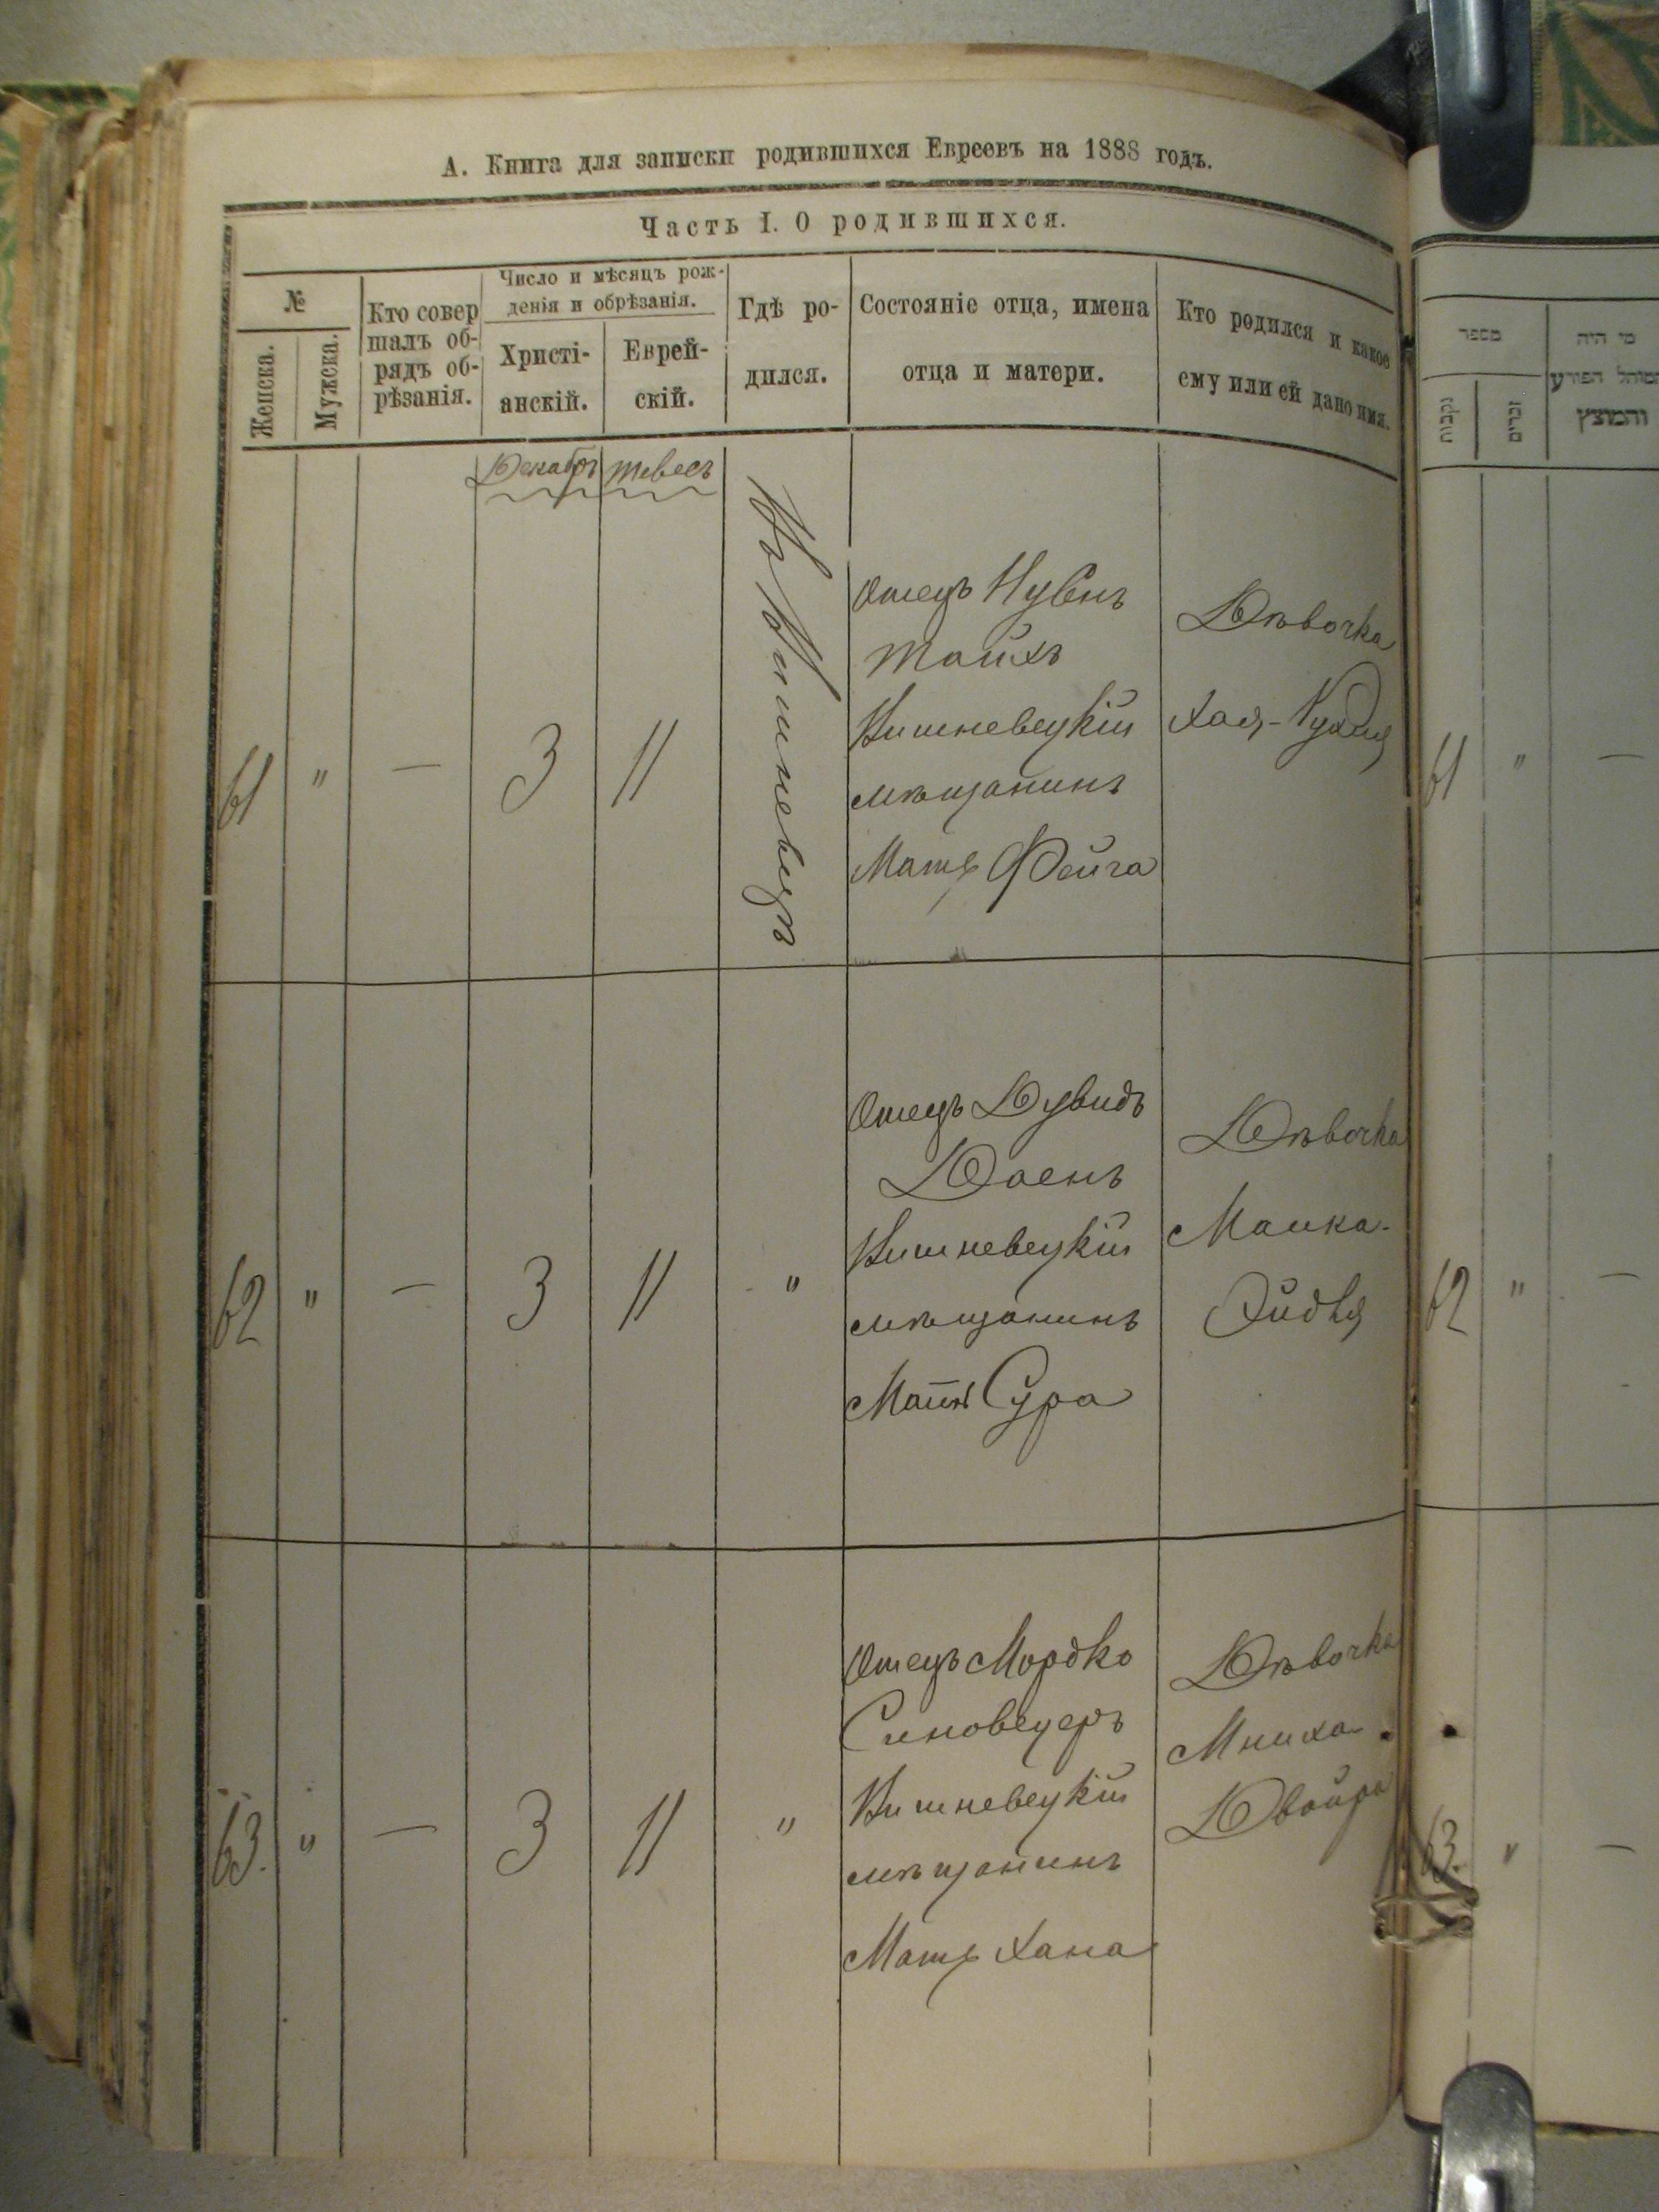 А. Книга для записки родившихся Евреевъ на 1888 годъ.
Часть I. О родившихся.
№
Женска.
Мужска.
Кто совер
шалъ об-
рядъ об-
рѣзанія.
Число и мѣсяцъ рож-
денія и обрѣзанія.
Христі-
анскій.
Еврей-
скій.
Гдѣ ро-
дился.
Состояніе отца, имена
отца и матери.
Кто родился и какое
ему или ей дано имя.
Декабрь
тевесъ
61 " — 3 11
Въ Вишневцѣ
Отецъ
Тайхъ
Вишневецкій
мѣщанинъ
Мать Фейга
Дѣвочка
Хая-
62 " — 3 11 "
Отецъ Дувидъ
Даенъ
Вишневецкій
мѣщанинъ
Мать Сура
Дѣвочка
Малка-
63. " — 3 11 "
Отецъ Мордко
Синовецеръ
Вишневецкій
мѣщанинъ
Мать Хана
Дѣвочка
Мниха-
Двойра
מספר
נקבות
זכרים
מי היה
המוהל הפורע
והמוצץ
61 " —
62 " —
63. " —